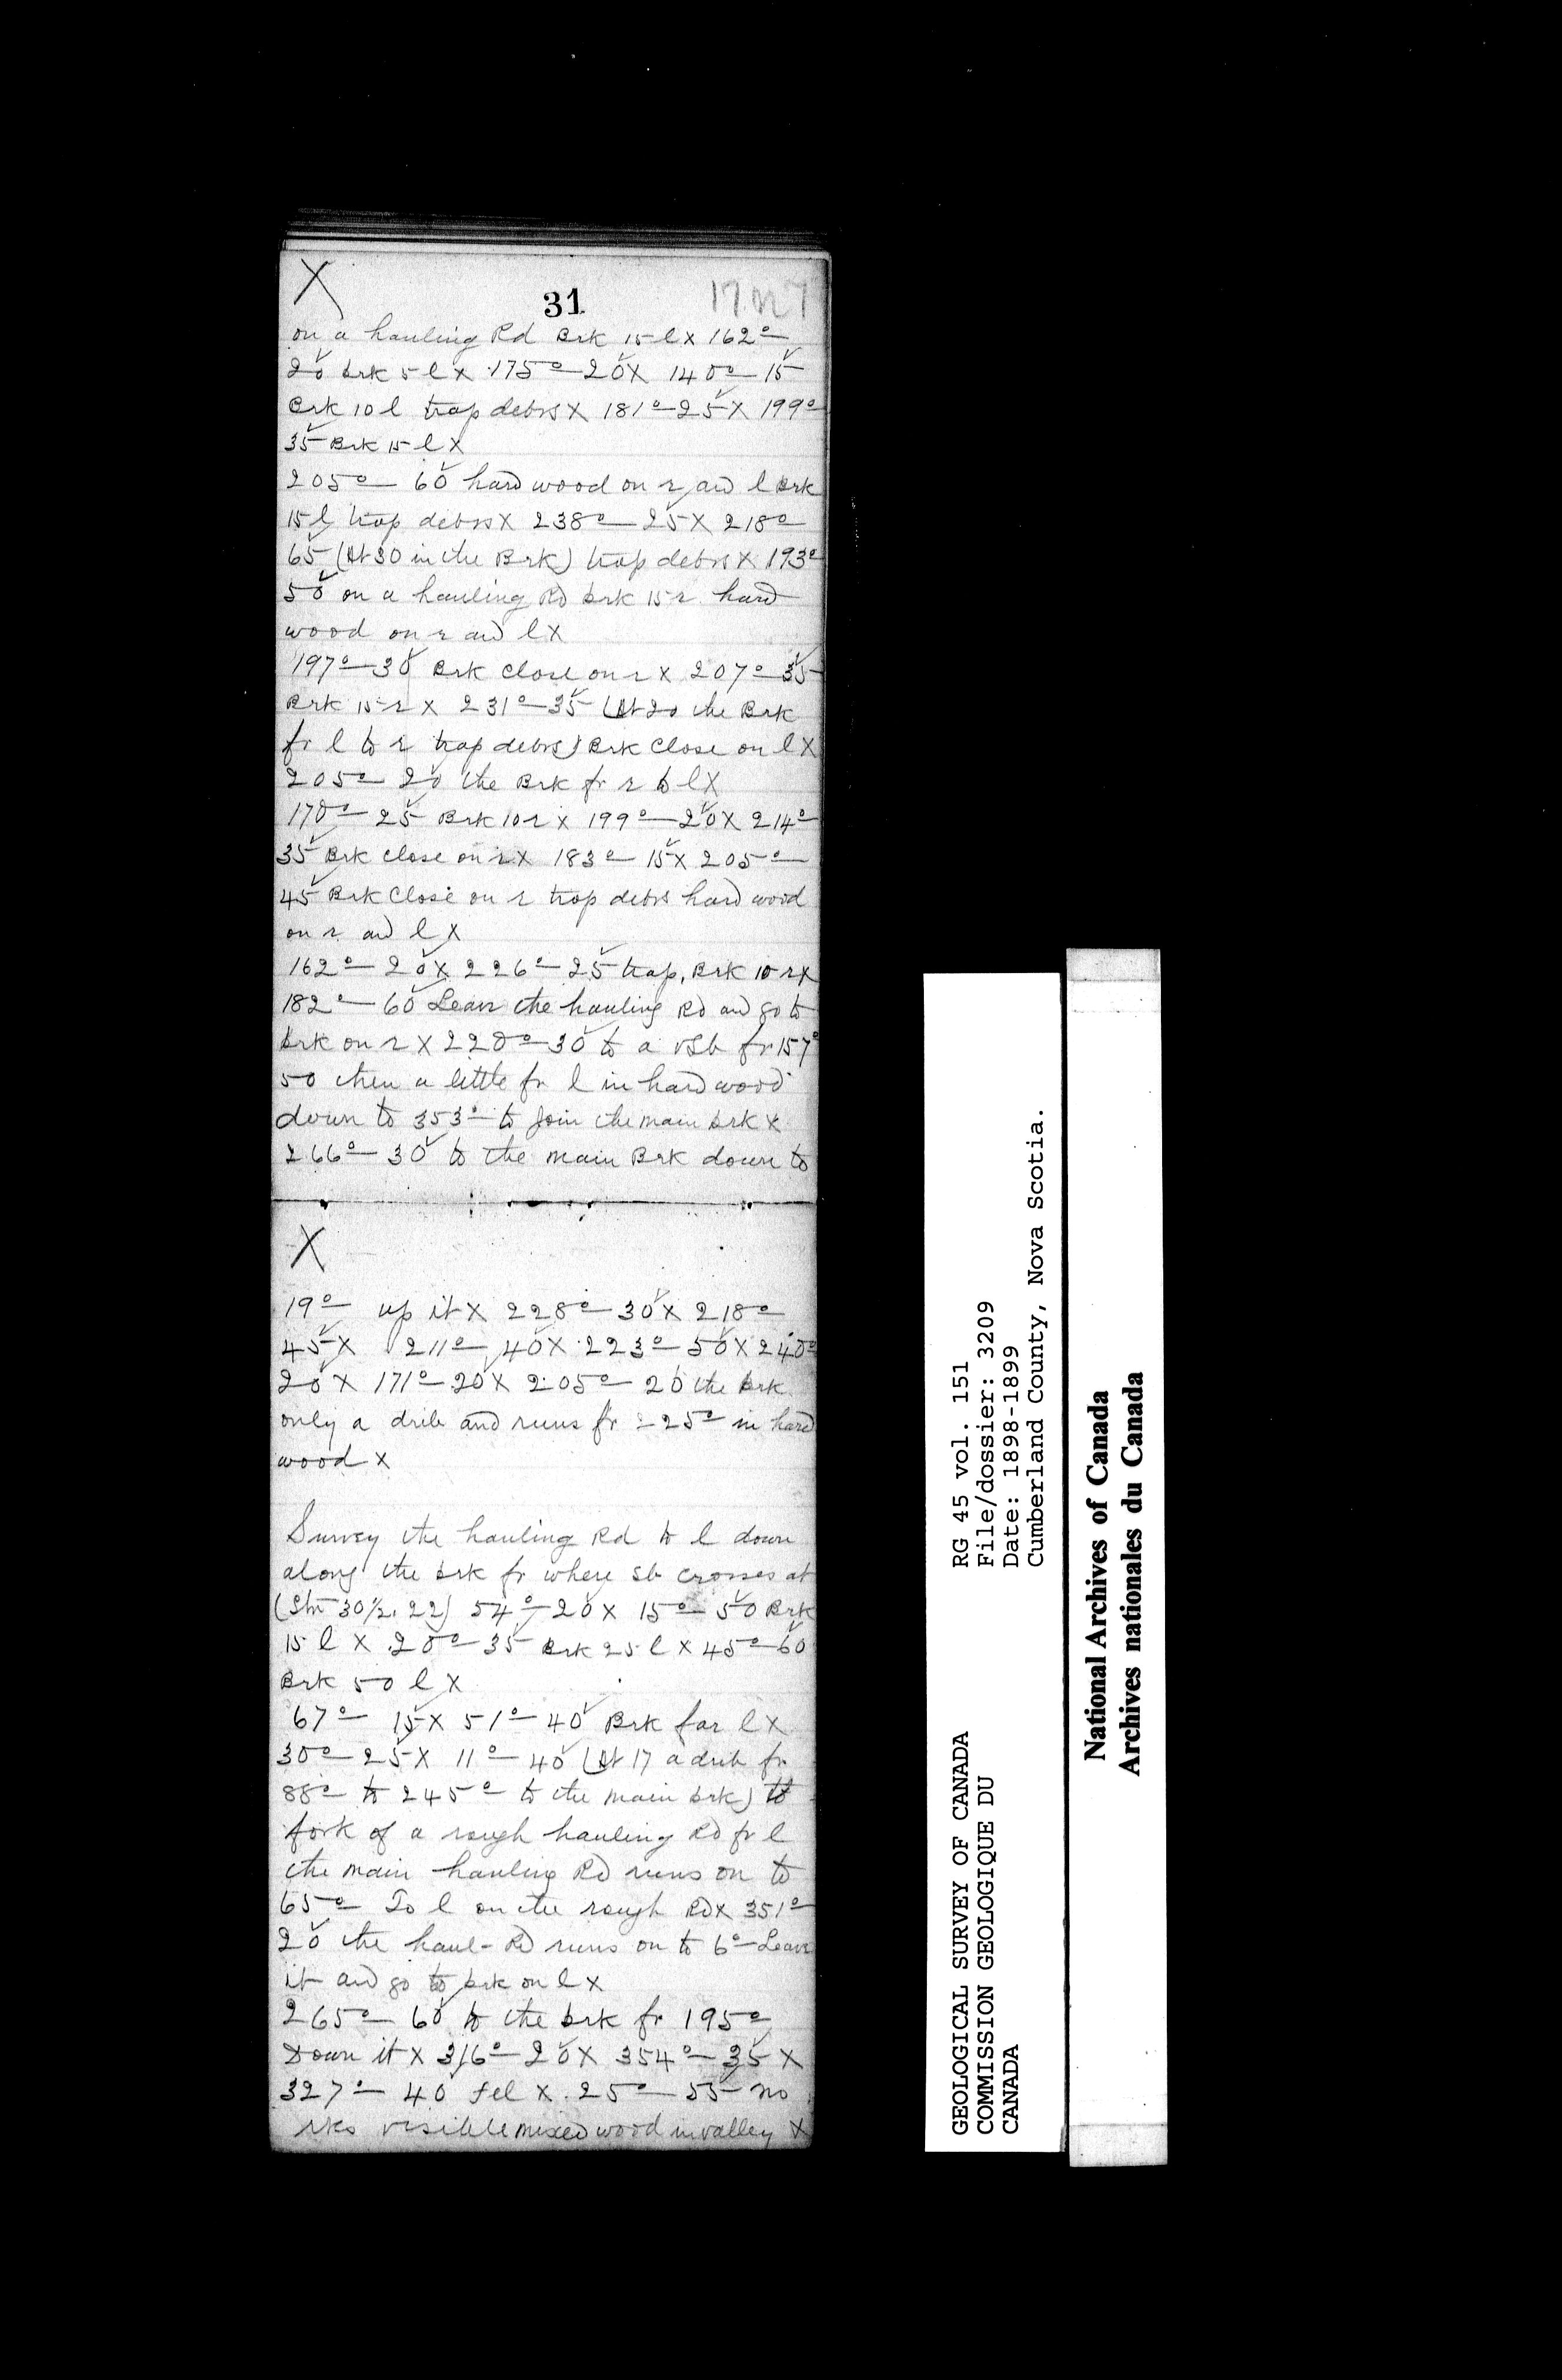 X
31
17.N7
on a hauling Rd Brk 15 l X 162°—
20 brk 5 l X 175°—20 X 140°—15
Brk 10 l trap debrs X 181°—25 X 199°—
35 Brk 15 l X
205°— 60 hard wood on r and l brk
15 l trap debrs X 238°—25 X 218°—
65 (At 30 in the Brk) trap debrs X 193°—
50 on a hauling Rd brk 15 r hard
wood on r and l X
197°—30 Brk close on r X 207°—35
Brk 15 r X 231°—35 (At 20 the Brk
fr l to r trap debrs) Brk close on l X
205°— 20 the Brk fr r to l X
170°— 25 Brk 10 r X 199°—20 X 214°—
35 Brk close on r X 183°— 15 X 205°—
45 Brk close on r trap debrs hard wood
on r and l X
162°— 20 X 226°— 25 trap, Brk 10 r X
182°— 60 Leave the hauling Rd and go to
brk on r X 220°—30 to a vSb fr 157°
50 then a little fr l in hard wood
down to 353°— to join the main brk X
266°— 30 to the main Brk down to
X
19°— up it X 228°—30 X 218°—
45 X 211°—40 X 223°—50 X 240°
20 X 171°—20 X 205°— 20 the brk
only a drib and runs fr 225°— in hard
wood X
Survey the hauling Rd to l down
along the brk fr where Sb crosses at
(Stn 30½, 22) 54°—20 X 15°— 50 Brk
15 l X 20°—35 Brk 25 l X 45°—60
Brk 50 l X
67°— 15 X 51°— 40 Brk far l X
30°— 25 X 11°— 40 (At 17 a drib fr
88°— to 245°— to the main brk) to
fork of a rough hauling Rd fr l
the main hauling Rd runs on to
65°— To l on the rough Rd X 351°—
20 the haul-Rd runs on to 6°— Leave
it and go to brk on l X
265°— 60 to the brk fr 195°—
Down it X 316°—20 X 354°—35 X
327°— 40 fel X 25°— 55 no
rks visible mixed wood in valley X
GEOLOGICAL SURVEY OF CANADA
COMMISSION GEOLOGIQUE DU
CANADA
RG 45 vol. 151
File/dossier: 3209
Date: 1898-1899
Cumberland County, Nova Scotia.
National Archives of Canada
Archives nationales du Canada